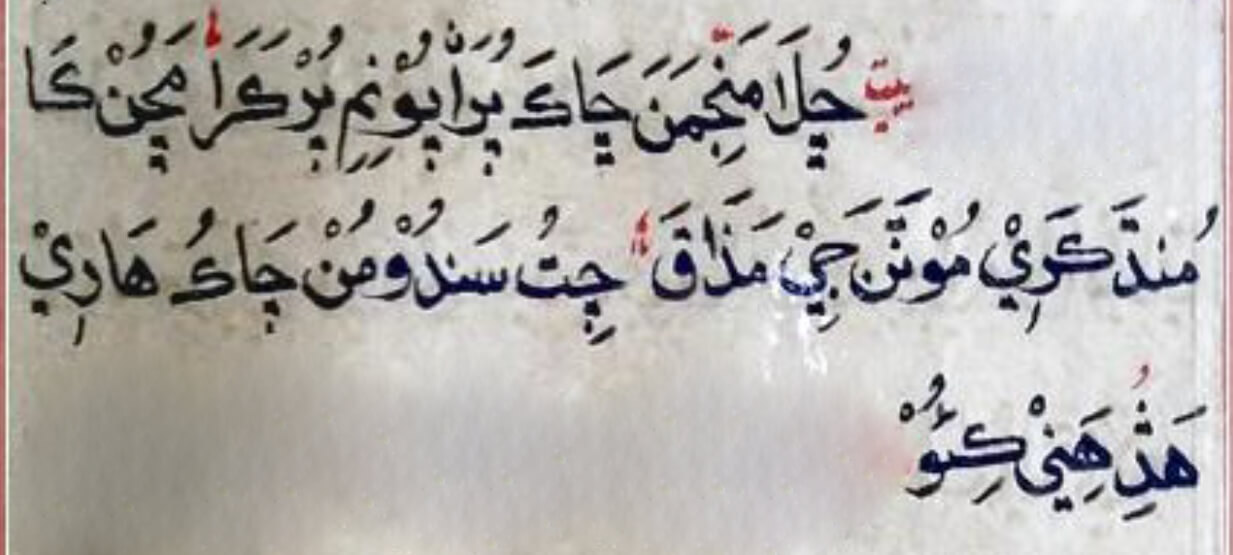 بيت چُلَا مَنِجَمَنَ چَاكَ پُرَا پُوْنِمِ پُرْ كَرَا مَچُنْ كَا
مُندَّ كَرِيْ مُوْنَّن جِيْ مَذَاقَ چِتُ سَندُوْ مُنْ چَاكُ هَارِيْ
هَڎِ هَنِيْ كِئُوْ